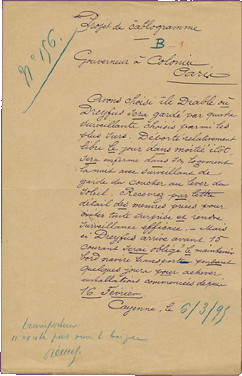 Projet de câblogramme
n° 156.
B-1
Gouverneur à Colonies
Paris
Avons choisi île Diable où
Dreyfus sera gardé par quatre
surveillants choisis parmi les
plus sûrs. Déporté relativement
libre le jour dans moitié îlot
sera enfermé dans son logement
la nuit avec surveillant de
garde du coucher au lever du
soleil. Recevrez par lettre
détail des mesures prises pour
éviter toute surprise et rendre
surveillance efficace. - Mais
si Dreyfus arrive avant 15
courant serai obligé le maintenir
bord navire transporteur pendant
quelques jours pour achever
installations commencées depuis
16 Février
Cayenne, le 6/3/95